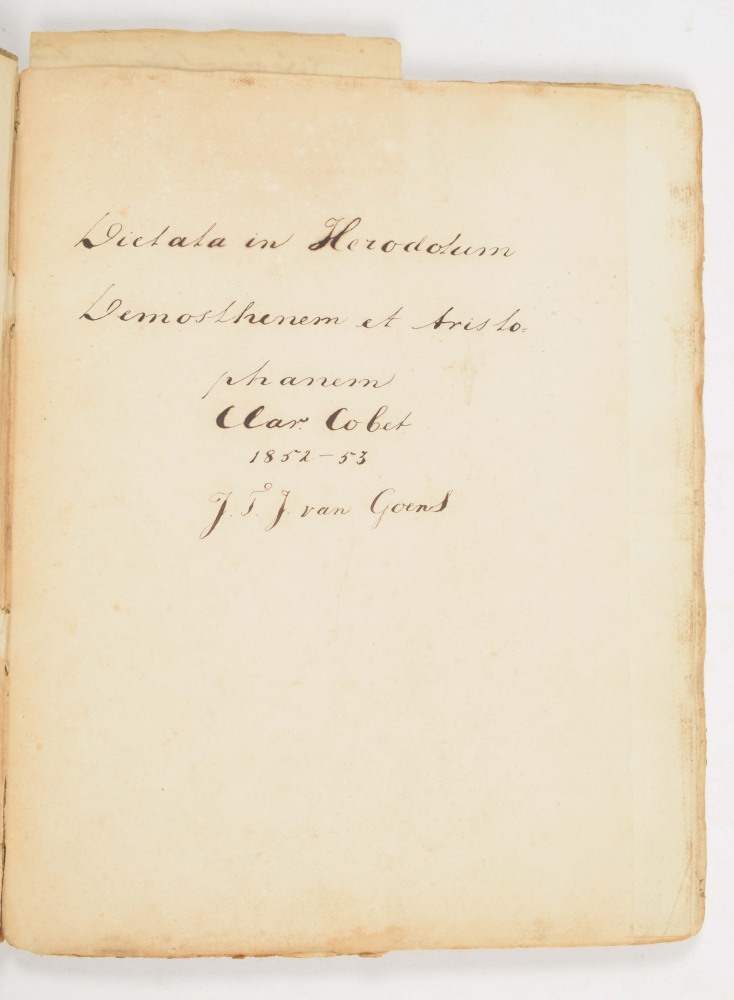 Dictata in Herodotum
Demosthenem et Aristo=
phanem
Clar. Cobet
1852-53
J. T. J. van Goens